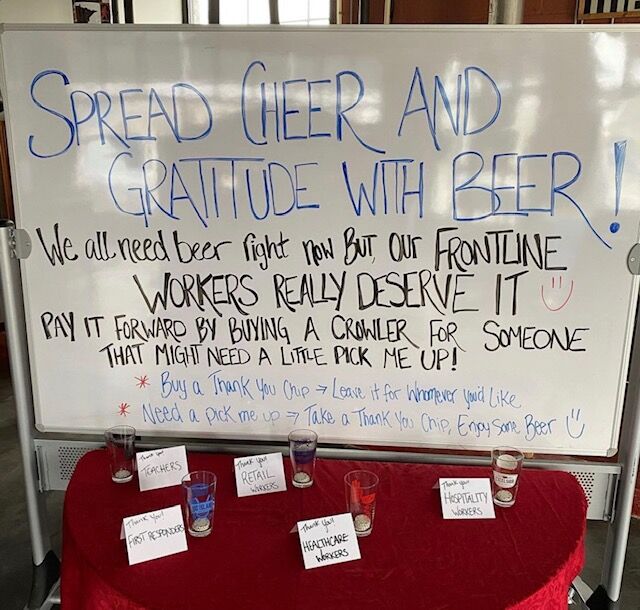 SPREAD CHEER AND
GRATITUDE WITH BEER!
We all need beer right now BUT, OUR FRONTLINE
WORKERS REALLY DESERVE IT
PAY IT FORWARD BY BUYING A CROWLER FOR SOMEONE
THAT MIGHT NEED A LITTLE PICK ME UP!
* Buy a Thank You Chip → Leave it for Whomever you'd Like
* Need a pick me up → Take a Thank You Chip, Enjoy Some Beer
Thank you!
TEACHERS
Thank You!
RETAIL
WORKERS
Thank You!
HOSPITALITY
WORKERS
Thank You!
FIRST RESPONDERS
Thank You!
HEALTHCARE
WORKERS